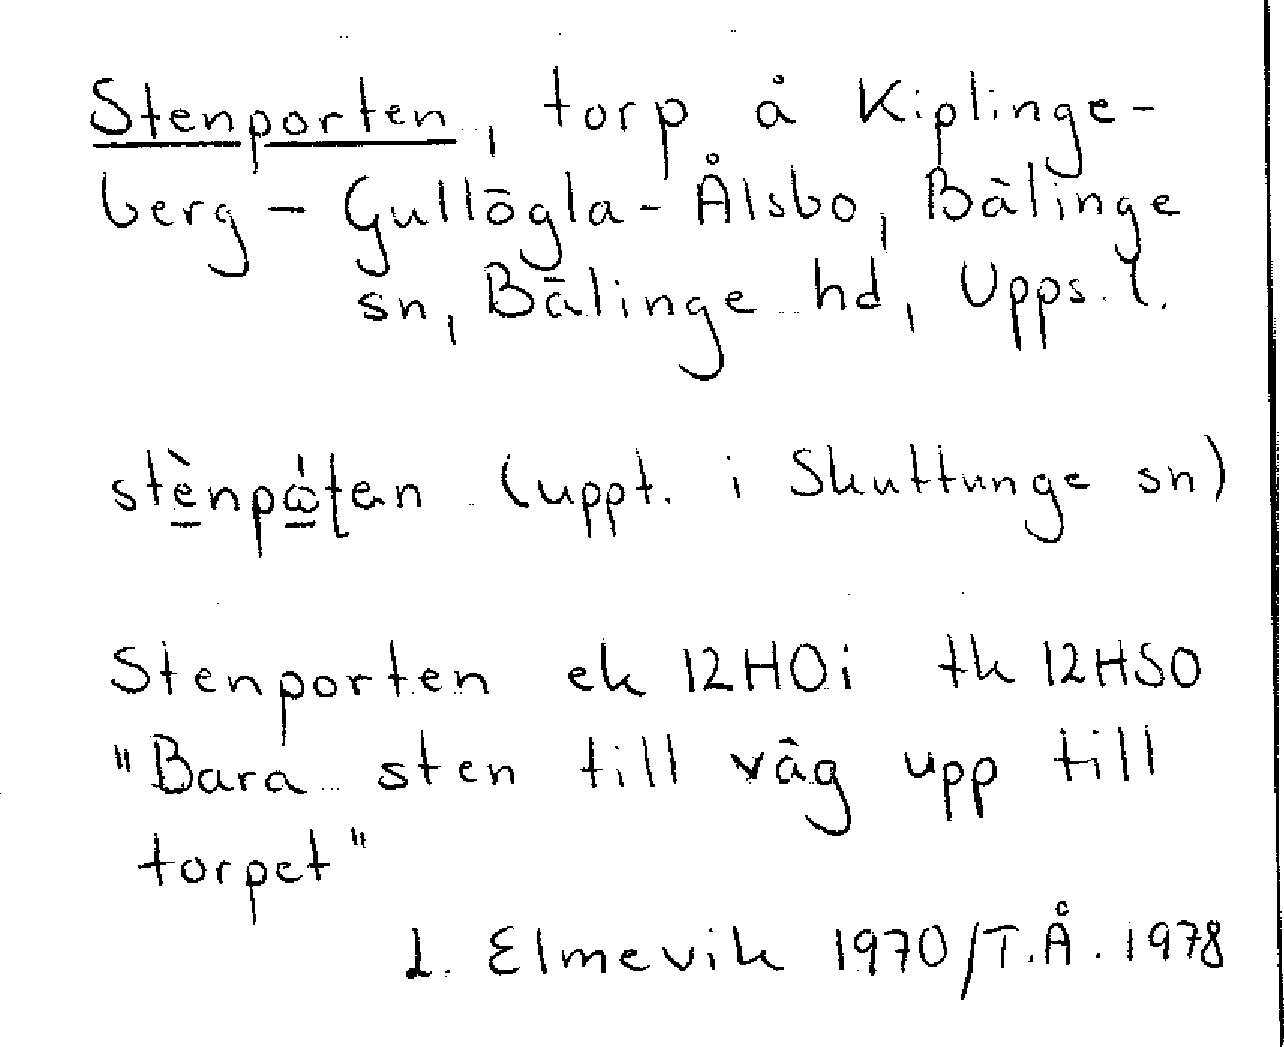 Stenporten, torp å Kiplinge-
berg - Gullögla - Ålsbo, Bälinge
sn, Bälinge hd, Upps. l.
stèn̲pȧ̀ʈan (uppt. i Skuttunge sn)
Stenporten ek 12H0i tk 12HSO
"Bara sten till väg upp till
torpet"
L. Elmevik 1970/T.Å. 1978